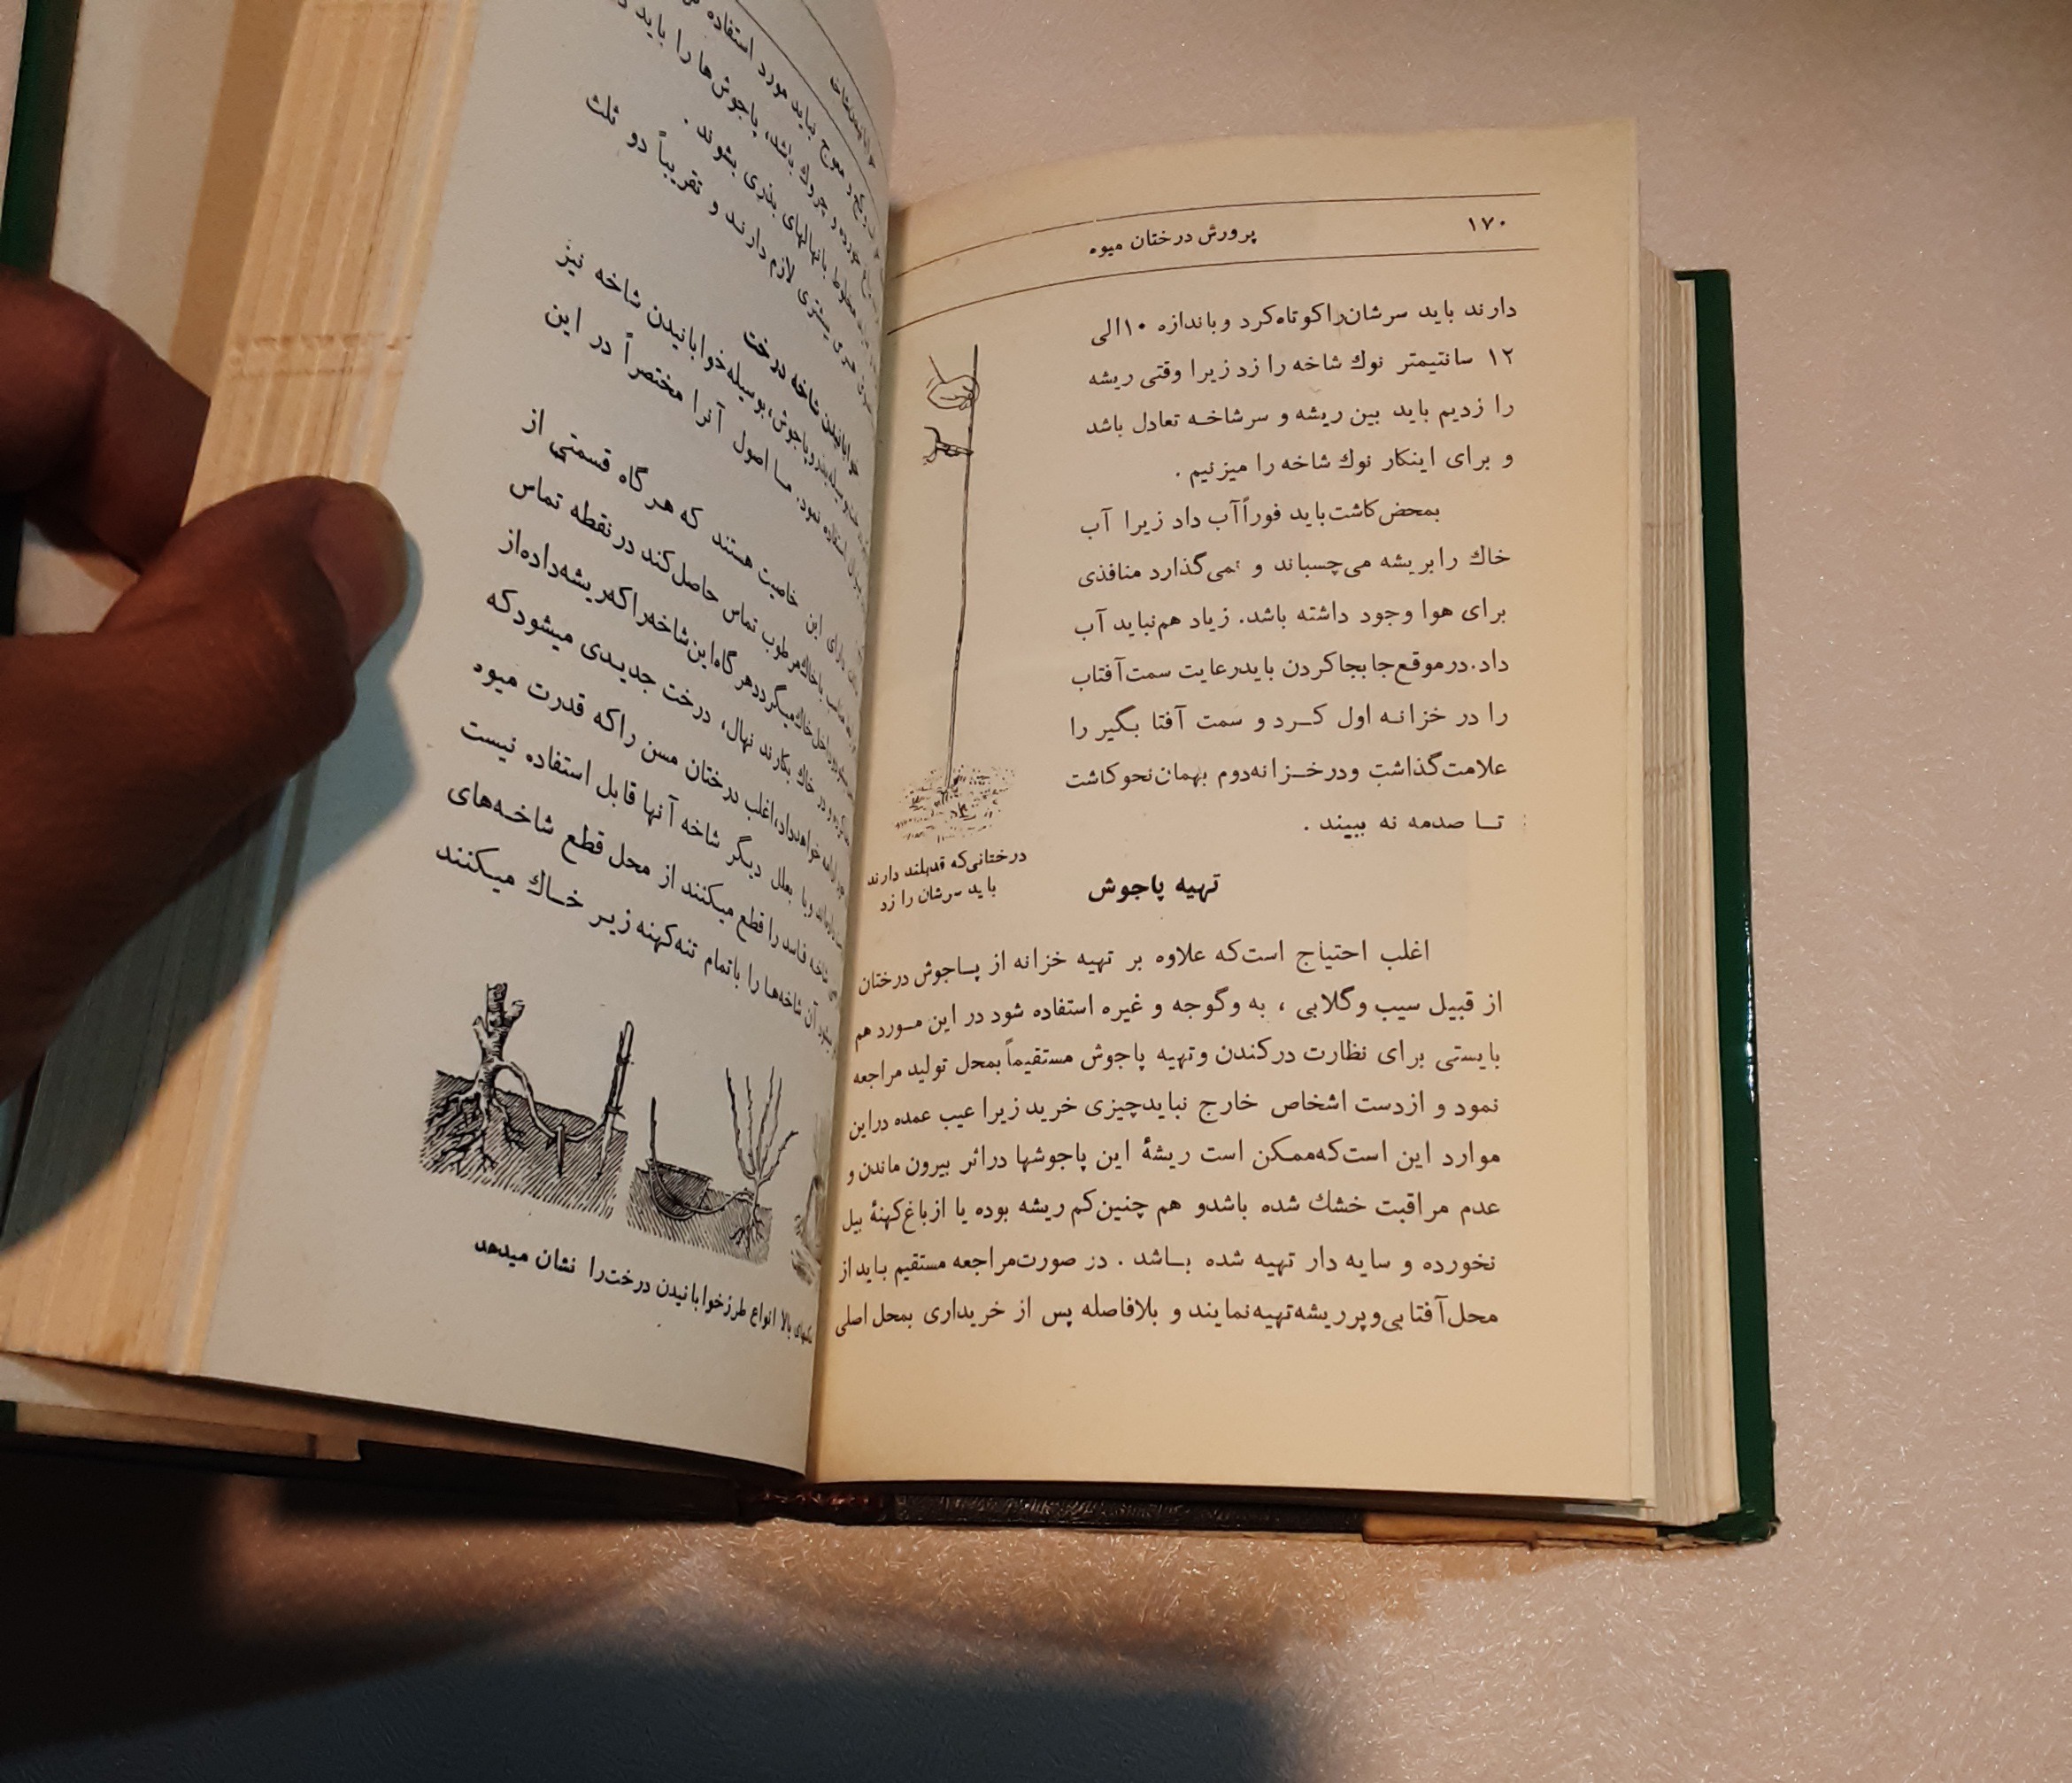 ۱۷۰
پرورش درختان میوه
دارند باید سرشان‌را کوتاه کرد و باندازه ۱۰ الی
۱۲ سانتیمتر نوك شاخه را زد زیرا وقتی ریشه
را زدیم باید بین ریشه و سرشاخه تعادل باشد
و برای اینکار نوك شاخه را میزنیم .
بمحض کاشت باید فوراً آب داد زیرا آب
خاك را بریشه می‌چسباند و نمی‌گذارد منافذی
برای هوا وجود داشته باشد. زیاد هم نباید آب
داد. در موقع جابجا کردن باید رعایت سمت آفتاب
را در خزانه اول کرد و سمت آفتا بگیر را
علامت گذاشت و در خزانه دوم بهمان نحو کاشت
تا صدمه نه بیند .
درختانی‌که قدبلند دارند
باید سرشان را زد
تهیه پاجوش
اغلب احتیاج است‌که علاوه بر تهیه خزانه از پاجوش درختان
از قبیل سیب و گلابی ، به و گوجه و غیره استفاده شود در این مورد هم
بایستی برای نظارت در کندن و تهیه پاجوش مستقیماً بمحل تولید مراجعه
نمود و از دست اشخاص خارج نباید چیزی خرید زیرا عیب عمده در این
موارد این است‌که ممکن است ریشهٔ این پاجوشها در اثر بیرون ماندن و
عدم مراقبت خشك شده باشد و هم چنین کم ریشه بوده یا از باغ کهنهٔ بیل
نخورده و سایه دار تهیه شده باشد . در صورت مراجعه مستقیم باید از
محل آفتابی و پر ریشه تهیه نمایند و بلافاصله پس از خریداری بمحل اصلی
نباید مورد استفاده
چروك باشد، پاجوش‌ها را باید
مخلوط با نهالهای بذری بشوند .
بیشتری لازم دارند و تقریباً دو ثلث
خوابانیدن شاخه درخت
و پاجوش، بوسیله خوابانیدن شاخه نیز
استفاده نمود. ما اصول آنرا مختصراً در این
دارای این خاصیت هستند که هر گاه قسمتی از
با خاك مرطوب تماس حاصل کند در نقطه تماس
داخل خاك میگردد هر گاه این شاخه را که ریشه داده از
در خاك بکارند نهال، درخت جدیدی میشود که
خواهد داد، اغلب درختان مسن را که قدرت میوه
و یا بعلل دیگر شاخه آنها قابل استفاده نیست
شاخه فاسد را قطع میکنند از محل قطع شاخه‌های
آن شاخه‌ها را با تمام تنه کهنه زیر خاك میکنند
بالا انواع طرز خوابانیدن درخت را نشان میدهد